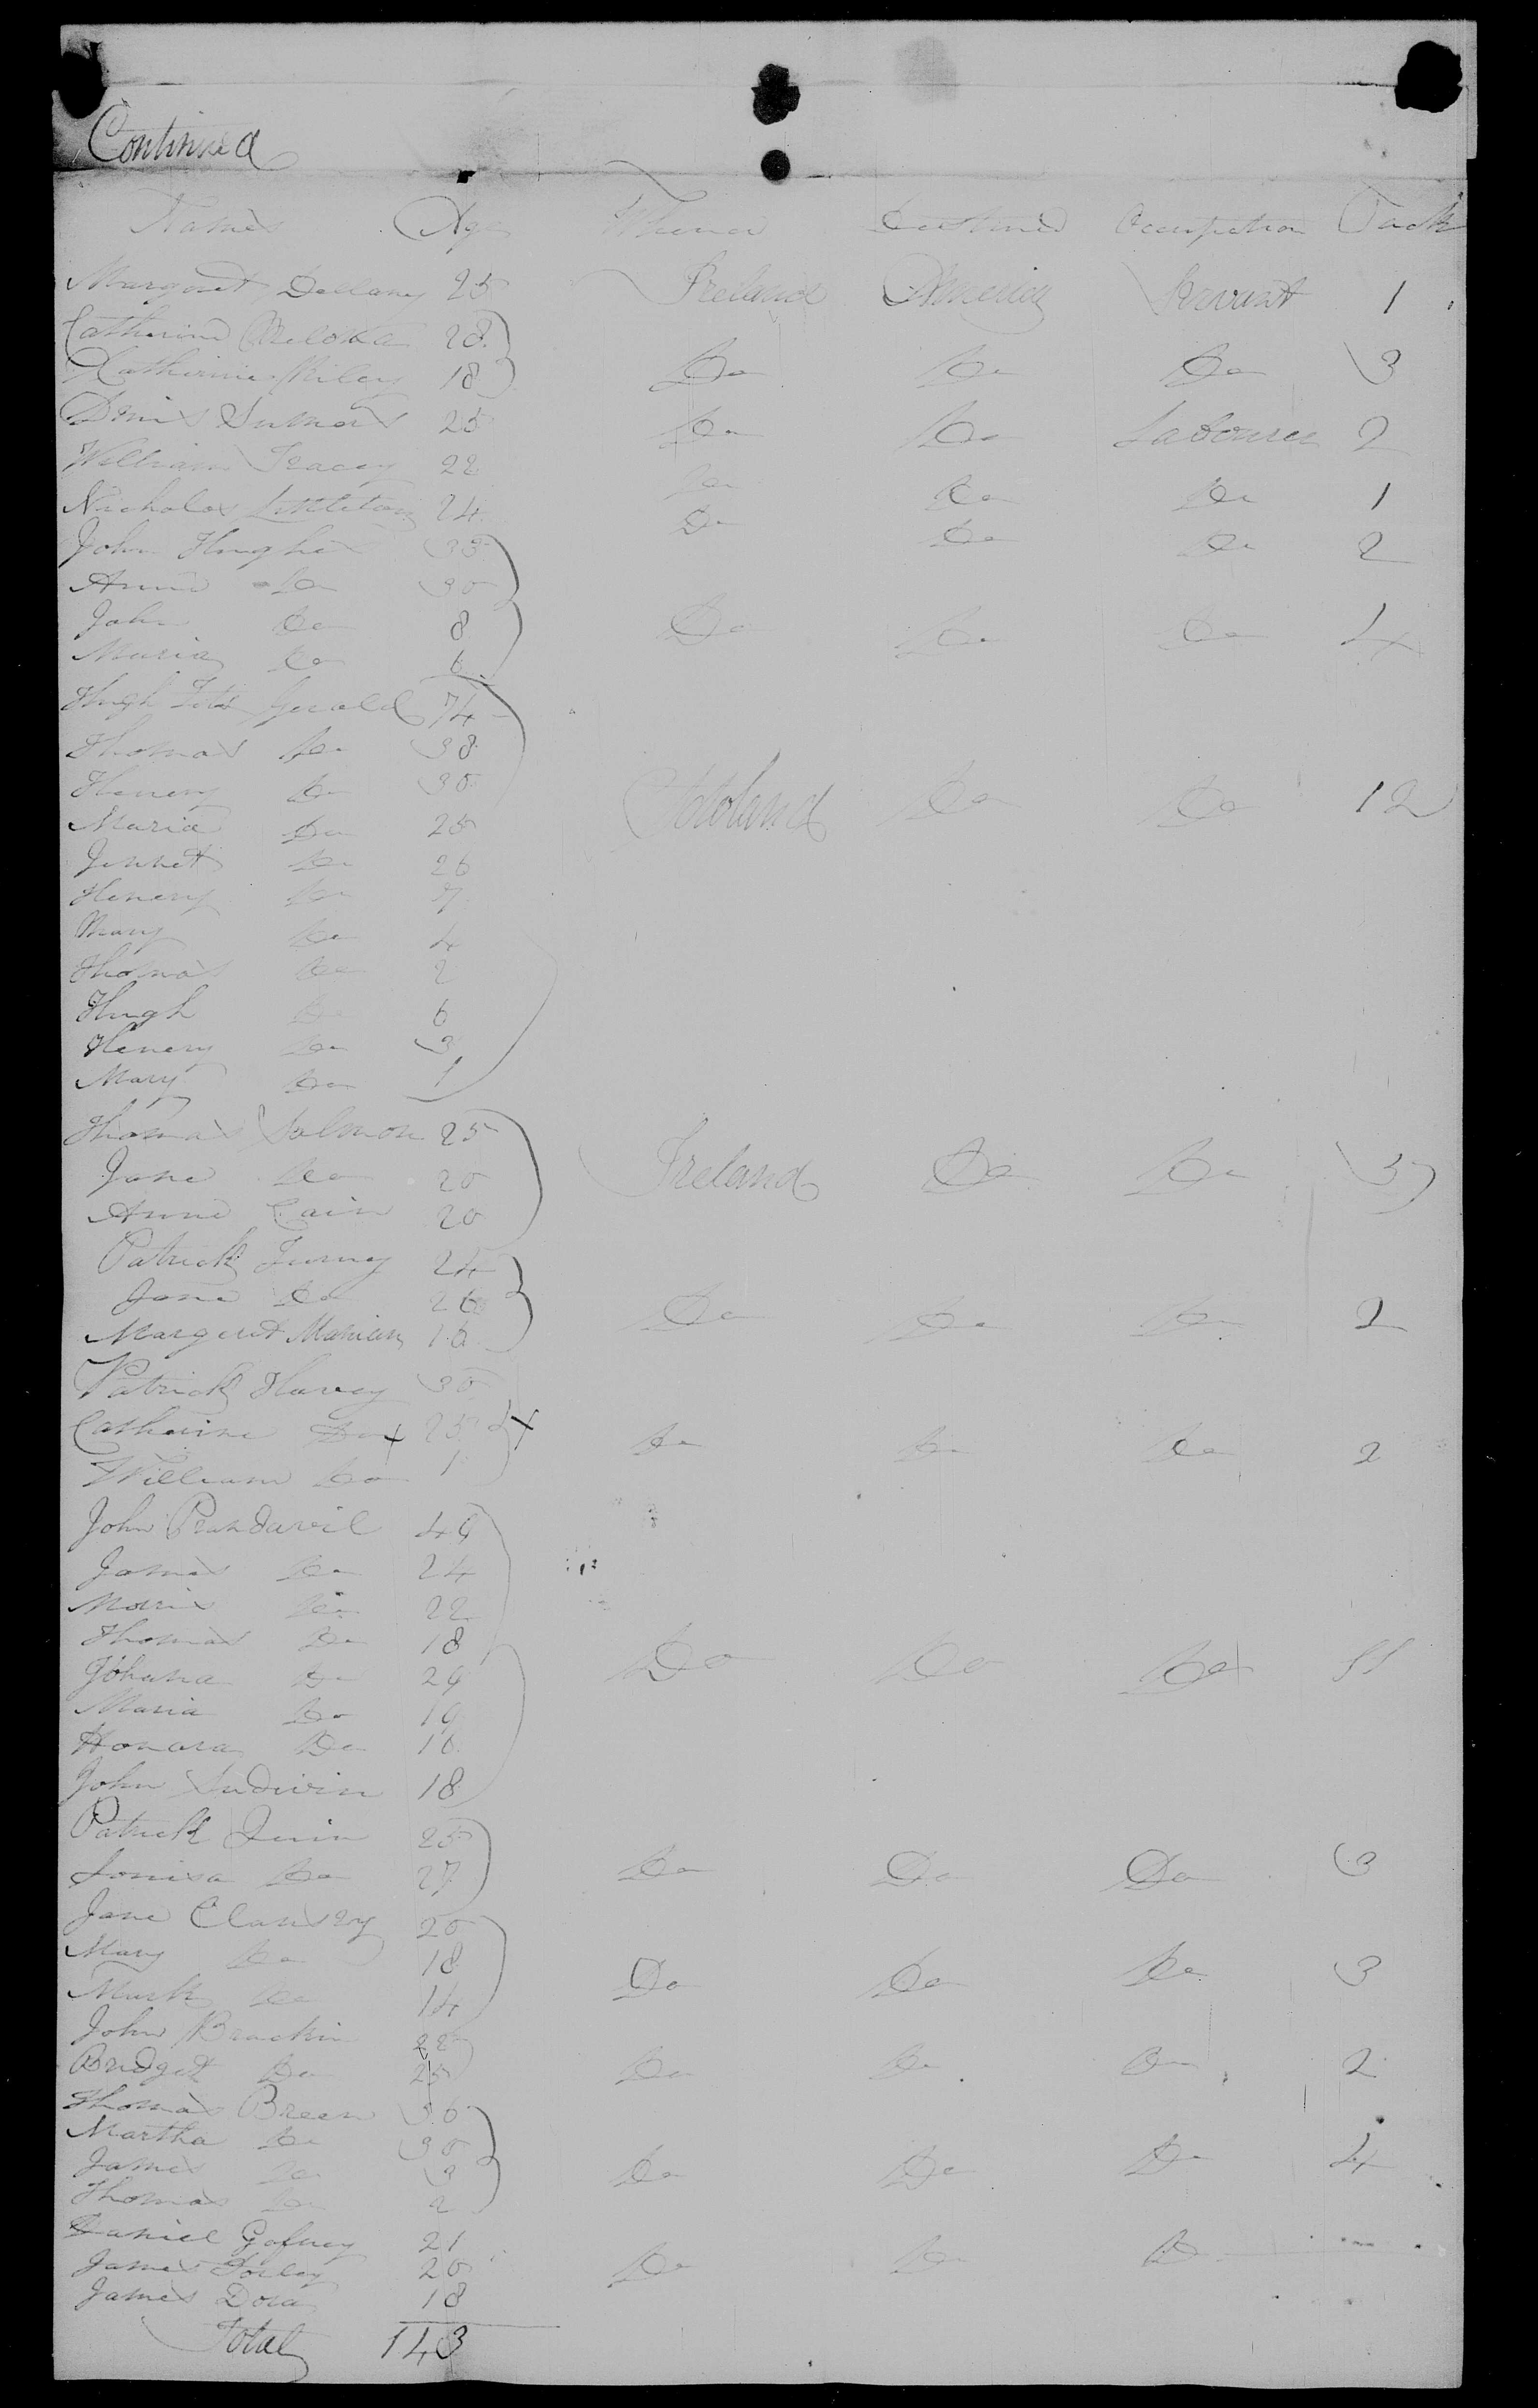 Continued
Names Age Whence Destined Occupation Pack
Margaret Dellany 25 Ireland America Servant 1
Catherine 28
Catherine Riley 18 Do Do Do 3
Sumers 25 Do Do Labourer 2
William Tracey 22 Do Do Do 1
Nicholas Littleton 24 Do Do Do 2
John Hughes 35
Anne Do 30
John Do 8 Do Do Do 4
Maria Do 6
Hugh Fitz Gerald 74
Thomas Do 38
Henery Do 30 Do Do 12
Maria Do 25
Jennet Do 26
Henery Do 7
Mary Do 4
Thomas Do 2
Hugh Do 6
Henery Do 3
Mary Do 1
Thomas Salmon 25
Jane Do 20 Ireland Do Do 3
Anne Cain 20
Patrick 24
Jane Do 26 Do Do Do 2
Margeret 16
Patrick Harvey 30
Catherine Do 25 Do Do Do 2
William Do 1
John 49
James Do 24
Morris Do 22
Thomas Do 18 Do Do Do 11
Johana Do 29
Maria Do 19
Honara Do 16
John 18
Patrick Quin 25
Louisa Do 27 Do Do Do 3
Jane Clansey 20
Mary Do 18 Do Do Do 3
Mark Do 14
John Brackin
Bridget Do 25 Do Do Do 2
Thomas Breen 36
Martha Do 30
James Do 3 Do Do Do 4
Thomas Do 2
Daniel Gafney 21
James 20 Do Do Do
James Dora 18
Total 143